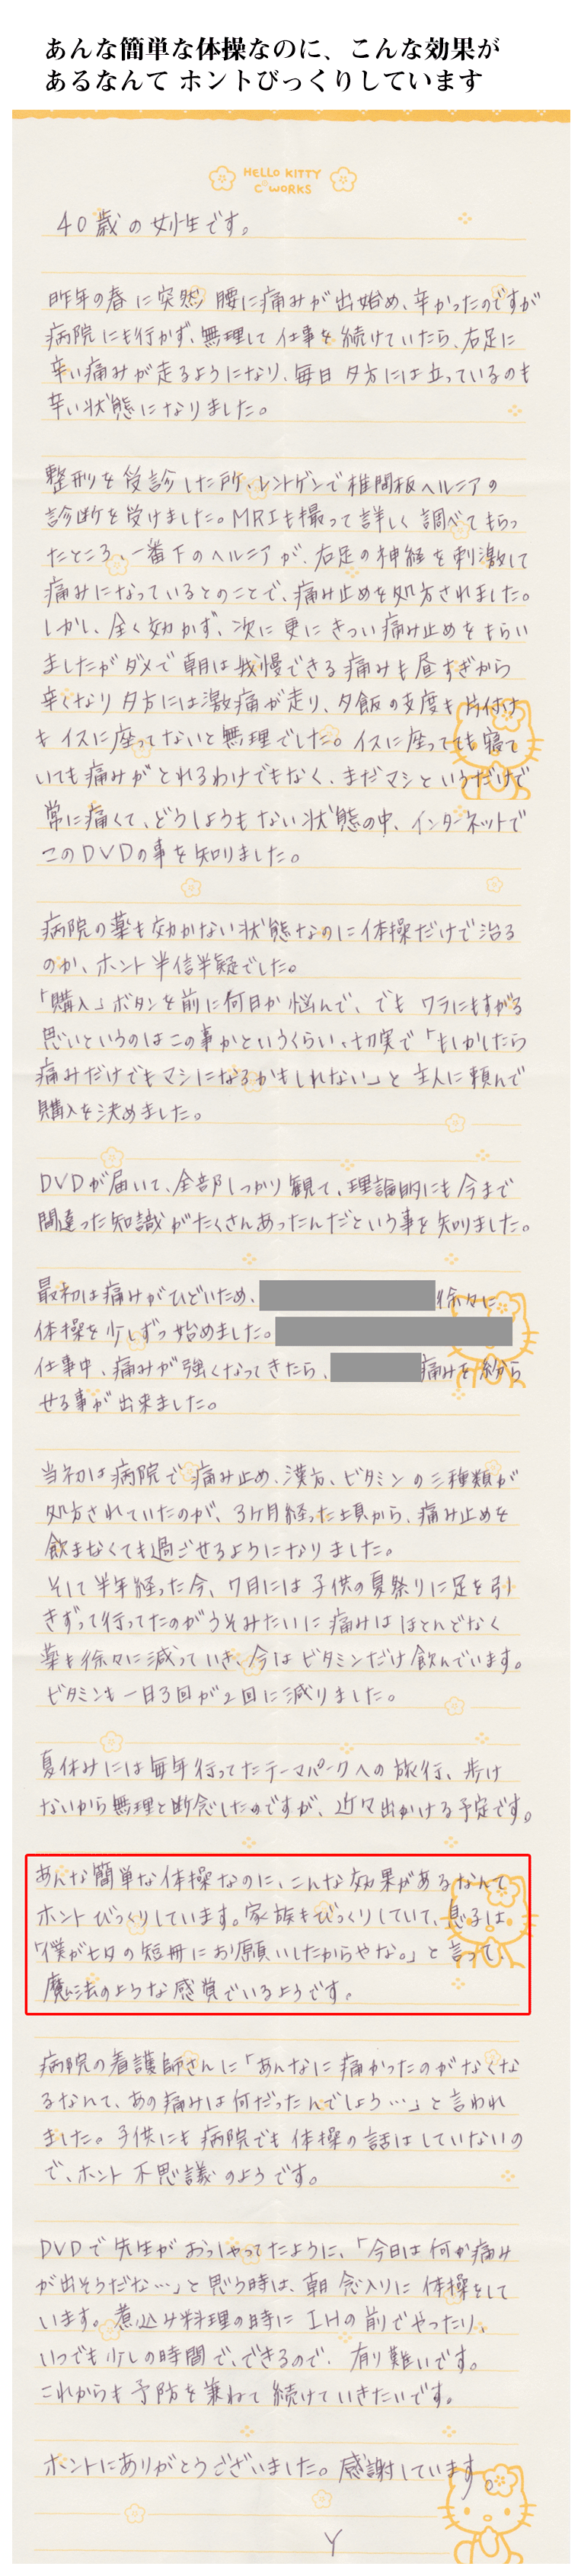 あんな簡単な体操なのに、こんな効果が
あるなんて ホントびっくりしています
HELLO KITTY
C WORKS
40歳の女性です。
昨年の春に突然 腰に痛みが出始め、辛かったのですが
病院にも行かず、無理して仕事を続けていたら、右足に
辛い痛みが走るようになり、毎日 夕方には立っているのも
辛い状態になりました。
整形を受診した所、レントゲンで椎間板ヘルニアの
診断を受けました。MRIも撮って詳しく調べてもらっ
たところ、一番下のヘルニアが、右足の神経を刺激して
痛みになっているとのことで、痛み止めを処方されました。
しかし、全く効かず、次に更にきつい痛み止めをもらい
ましたがダメで朝は我慢できる痛みも昼すぎから
辛くなり 夕方には激痛が走り、夕飯の支度も片付け
もイスに座ってないと無理でした。イスに座ってても寝て
いても痛みがとれるわけでもなく、まだマシというだけで
常に痛くて、どうしようもない状態の中、インターネットで
このDVDの事を知りました。
病院の薬も効かない状態なのに体操だけで治る
のか、ホント半信半疑でした。
「購入」ボタンを前に何日か悩んで、でも ワラにもすがる
思いというのはこの事かというくらい、切実で「もしかしたら
痛みだけでもマシになるかもしれない」と 主人に頼んで
購入を決めました。
DVDが届いて、全部しっかり観て、理論的にも今まで
間違った知識がたくさんあったんだという事を知りました。
最初は痛みがひどいため、徐々に
体操を少しずつ始めました。
仕事中、痛みが強くなってきたら、痛みを紛ら
せる事が出来ました。
当初は病院で痛み止め、漢方、ビタミンの三種類が
処方されていたのが、3ヶ月経った頃から、痛み止めを
飲まなくても過ごせるようになりました。
そして半年経った今、7月には子供の夏祭りに足を引
きずって行ってたのがうそみたいに痛みはほとんどなく
薬も徐々に減っていき、今はビタミンだけ飲んでいます。
ビタミンも一日3回が2回に減りました。
夏休みには毎年行ってたテーマパークへの旅行、歩け
ないから無理と断念したのですが、近々出かける予定です。
あんな簡単な体操なのに、こんな効果があるなんて
ホントびっくりしています。家族もびっくりしていて、息子は
「僕が七夕の短冊にお願いしたからやな。」と言って、
魔法のような感覚でいるようです。
病院の看護師さんに「あんなに痛かったのがなくな
るなんて、あの痛みは何だったんでしょう…」と言われ
ました。子供にも病院でも体操の話はしていないの
で、ホント不思議のようです。
DVDで先生がおっしゃってたように、「今日は何か痛み
が出そうだな…」と思う時は、朝 念入りに体操をして
います。煮込み料理の時にIHの前でやったり、
いつでも少しの時間で、できるので、有り難いです。
これからも予防を兼ねて続けていきたいです。
ホントにありがとうございました。感謝しています。
Y